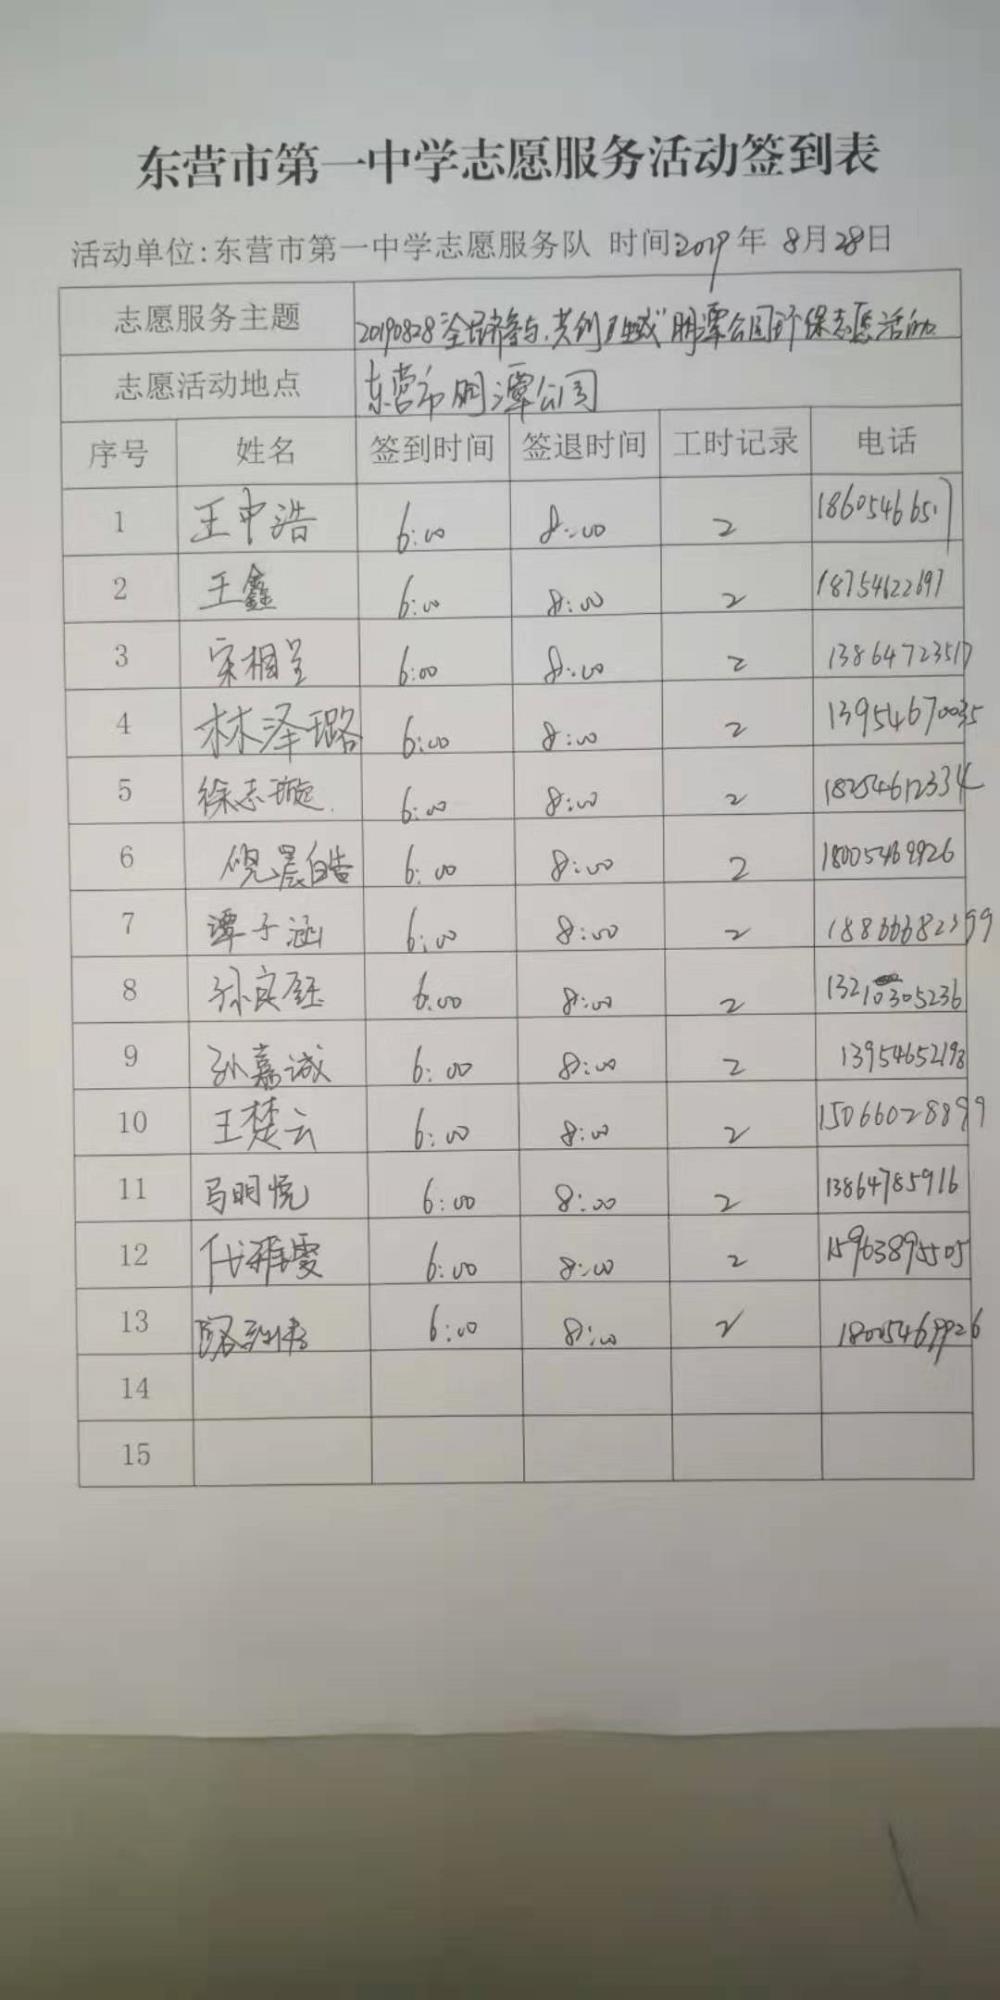 东营市第一中学志愿服务活动签到表
活动单位:东营市第一中学志愿服务队 时间:2019年 8月28日
志愿服务主题 20190828"全民参与,共创卫生城"明潭公园环保志愿活动
志愿活动地点 东营市明潭公园
序号 姓名 签到时间 签退时间 工时记录 电话
1 王中浩 6:00 8:00 2 18605466517
2 王鑫 6:00 8:00 2 18754622697
3 宋相呈 6:00 8:00 2 13864723517
4 林泽璐 6:00 8:00 2 13954670035
5 徐志璇 6:00 8:00 2 18254612334
6 倪晨皓 6:00 8:00 2 18005469926
7 谭子涵 6:00 8:00 2 18866682399
8 孙良钰 6:00 8:00 2 13210305236
9 孙嘉诚 6:00 8:00 2 13954652198
10 王楚云 6:00 8:00 2 15066028899
11 马明悦 6:00 8:00 2 13864785916
12 代雅雯 6:00 8:00 2 15963895505
13 6:00 8:00 2 18005469926
14
15